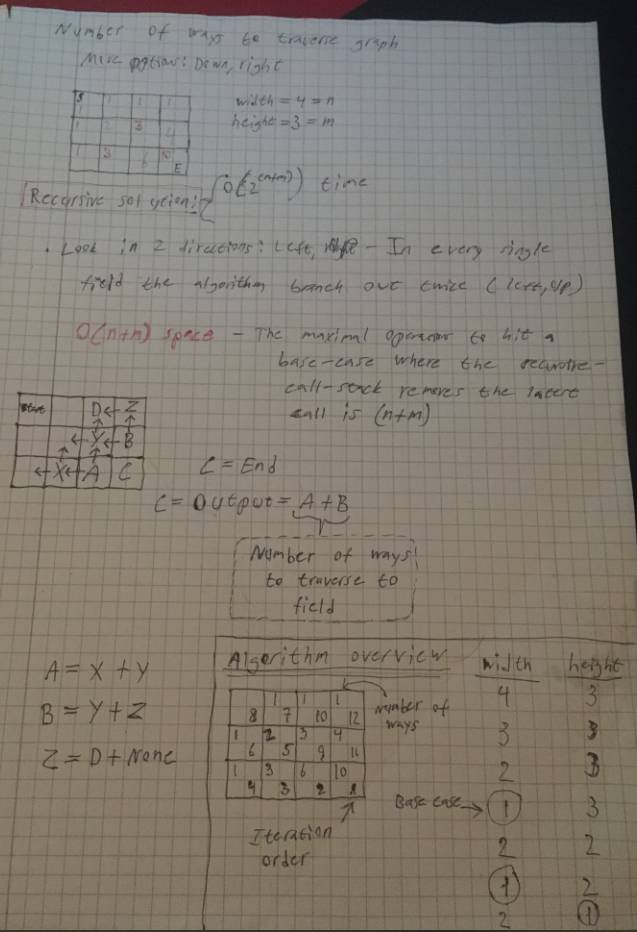 Number of ways to traverse graph
Move options: Down, right
S 1 1 1
1
1 2 3 4
1 3 6 10
E
width = 4 = n
height = 3 = m
Recursive solution: O(2^(n+m)) time
. Look in 2 directions: Left, - In every single
field the algorithm branch out twice (left, up)
O(n+m) space - The maximal to hit a
base-case where the recursive-
call-stack removes the latest
call is (n+m)
Start D ← Z
← Y ← B
← X ← A C
C = End
C = Output = A + B
Number of ways
to traverse to
field
A = X + Y
B = Y + Z
Z = D + None
Algorithm overview
width height
1 1 1
8 7 10 12
1 2 3 4
6 5 9 11
1 3 6 10
4 3 2 1
Number of
ways
Iteration
order
4 3
3 3
2 3
Base case → 1 3
2 2
1 2
2 1